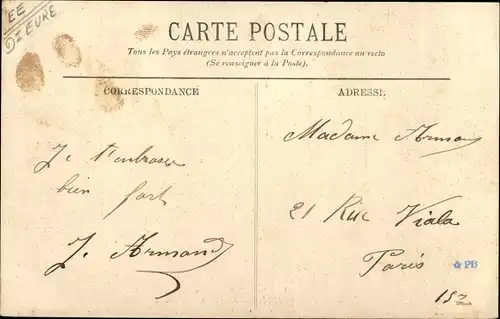 EE
Dt EURE
CARTE POSTALE
Tous les Pays étrangers n'acceptent pas la Correspondance au recto
(Se renseigner à la Poste).
CORRESPONDANCE
Je t'embrasse
bien fort
J. Armand
ADRESSE
Madame Armand
21 Rue Viala
Paris
PB
152